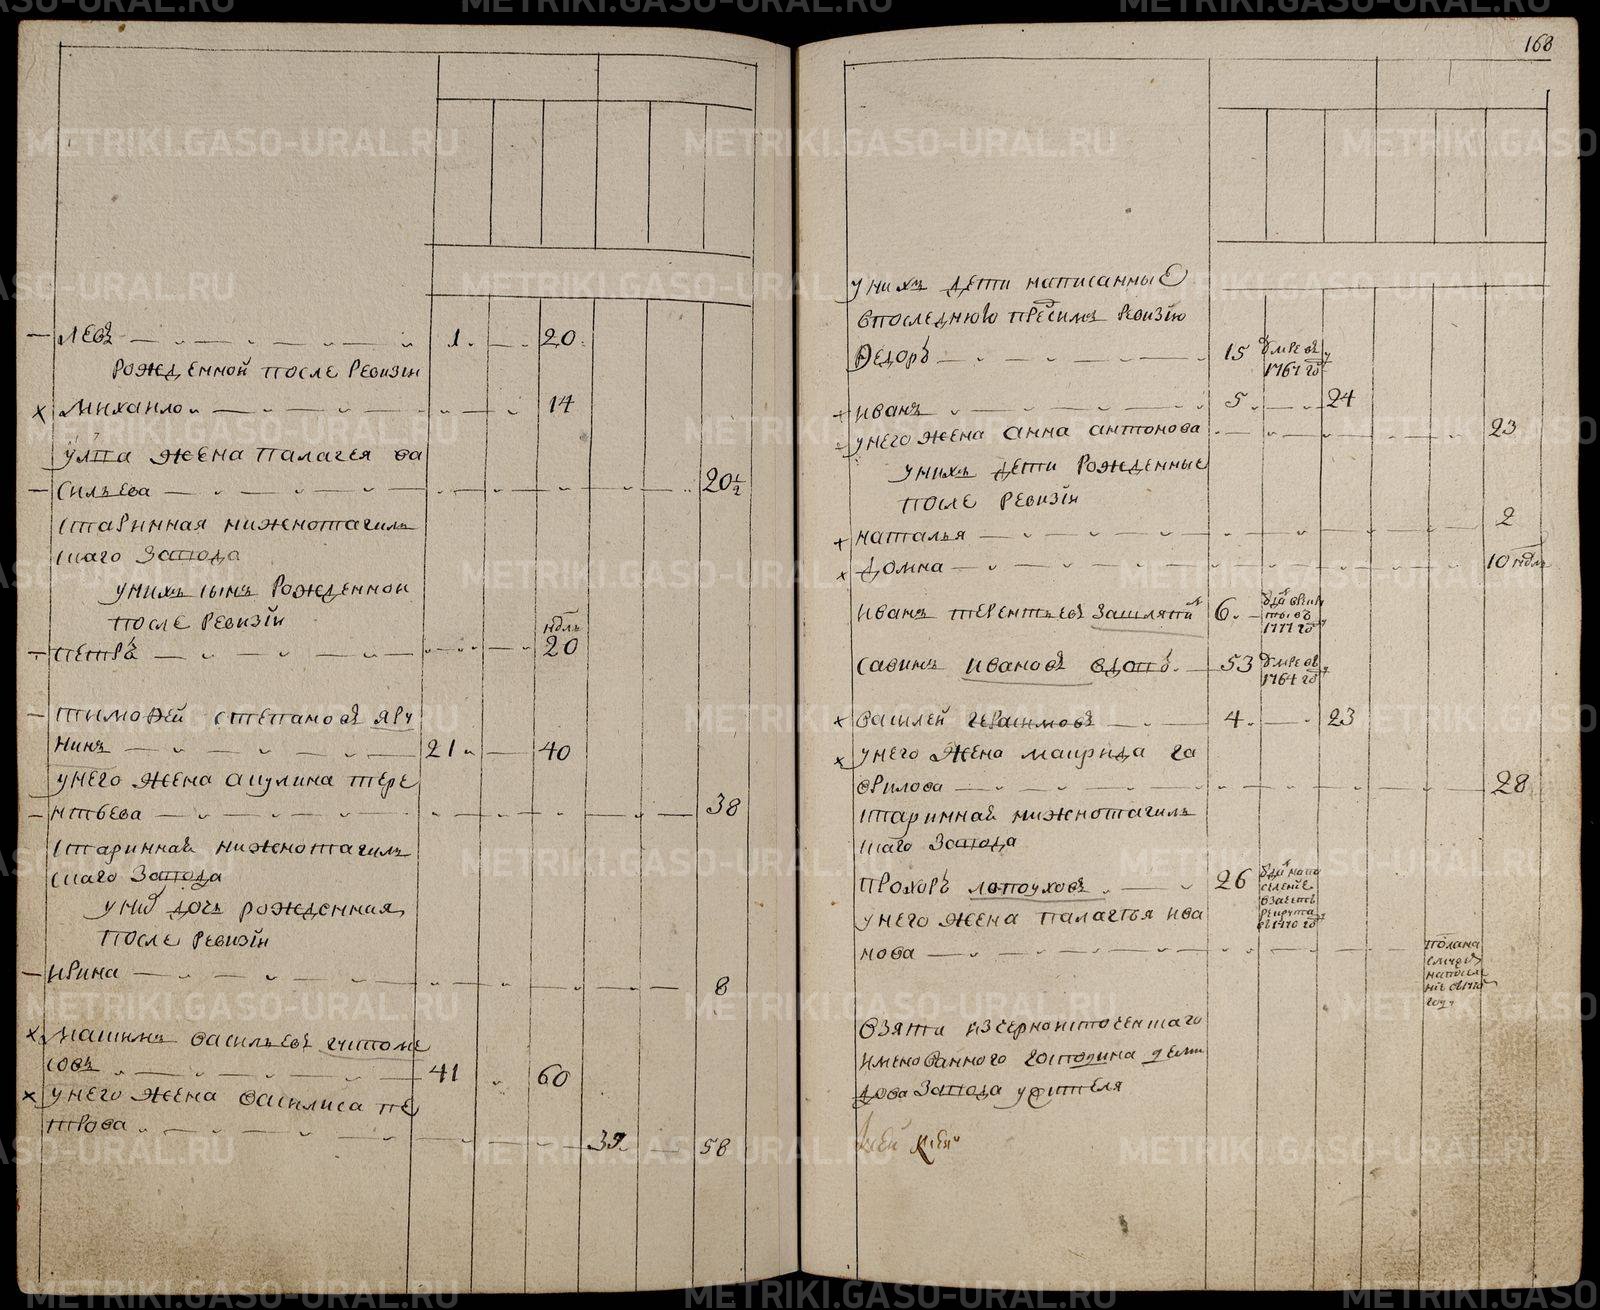 METRIKI.GASO-URAL.RU
левъ 1 20
рожденной после ревизiи
× михаило 14
улпа жена палагея ва
сильева 20½
старинная нижнотагиль
скаго завода
унихъ сынъ рожденной
после ревизiи
петръ ндль 20
тимофей степановъ яру
нинъ 21 40
унего жена акулина тере
нтьева 38
стариннаѣ нижнотагиль
скаго завода
униѵ дочь рожденная
после ревизiи
ирина 8
× максимъ васильевъ
совъ 41 60
× унего жена василиса пе
трова 39 58
168
унихъ дети написанные
впоследнюю пресимъ ревизiю
федоръ 15 умре въ
1767 го
+ иванъ 5 24
унего жена анна антонова 23
унихъ дети рожденные
после ревизiи
+ наталья 2
× домна 10 ндль
иванъ терентьевъ 6
1777 го
савинъ ивановъ вдовъ 53 умре въ
1764 го
× василей герасимовъ 4 23
× унего жена маврида га
врилова 28
стариннаѣ нижнотагиль
скаго завода
прохоръ лопоуховъ 26 отданъ на по
селенiе
взаетъ
рекрута
въ 1770 го
унего жена палагья ива
нова
взята изсерноисточенскаго
имено ванного господина деми
дова завода ужителя